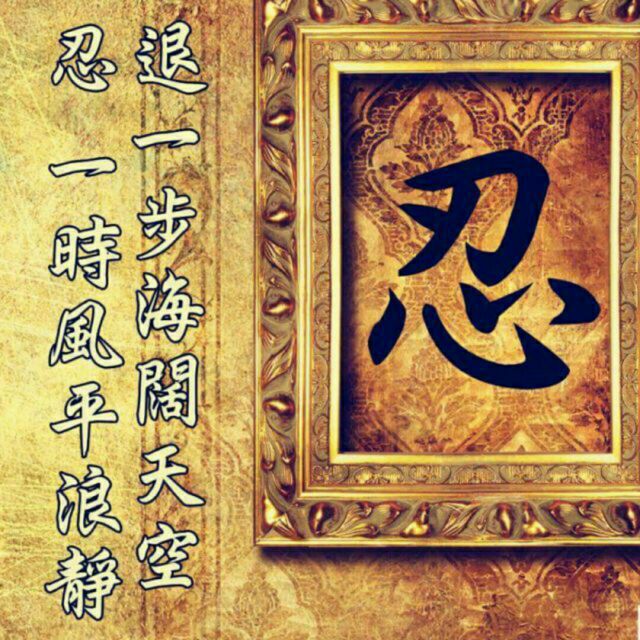 忍
退一步海闊天空
忍一時風平浪靜